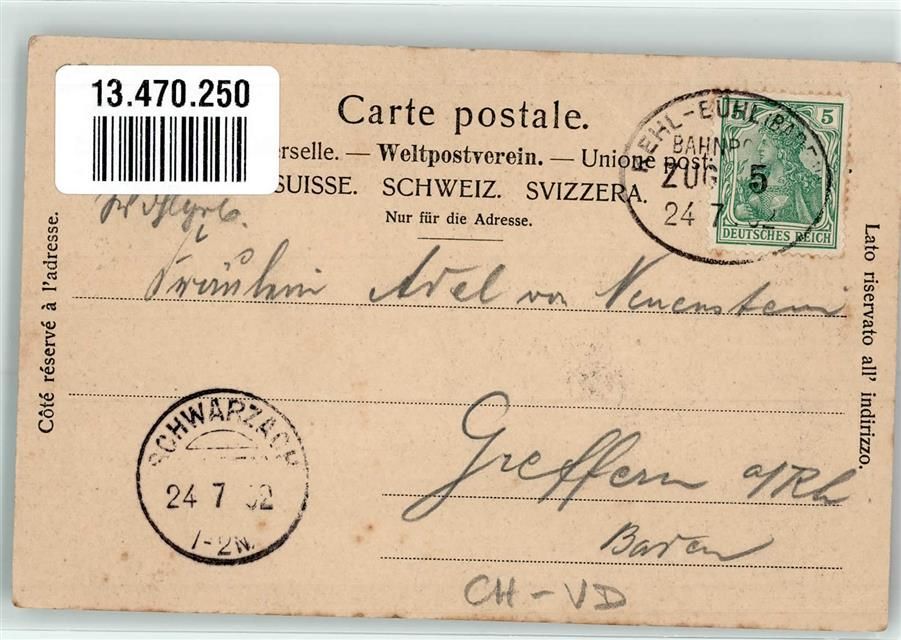 13.470.250
Carte postale.
erselle. — Weltpostverein. — Unione post
SUISSE. SCHWEIZ. SVIZZERA.
Nur für die Adresse.
Côté réservé à l'adresse.
Lato riservato all' indirizzo.
KEHL-BÜHL (BADEN)
BAHNPO
ZUG
24 7 02
5
5
DEUTSCHES REICH
Fräulein Adel von Neuenstein
Greffern a/Rh
Baden
SCHWARZACH
24 7 02
1-2N
CH-VD